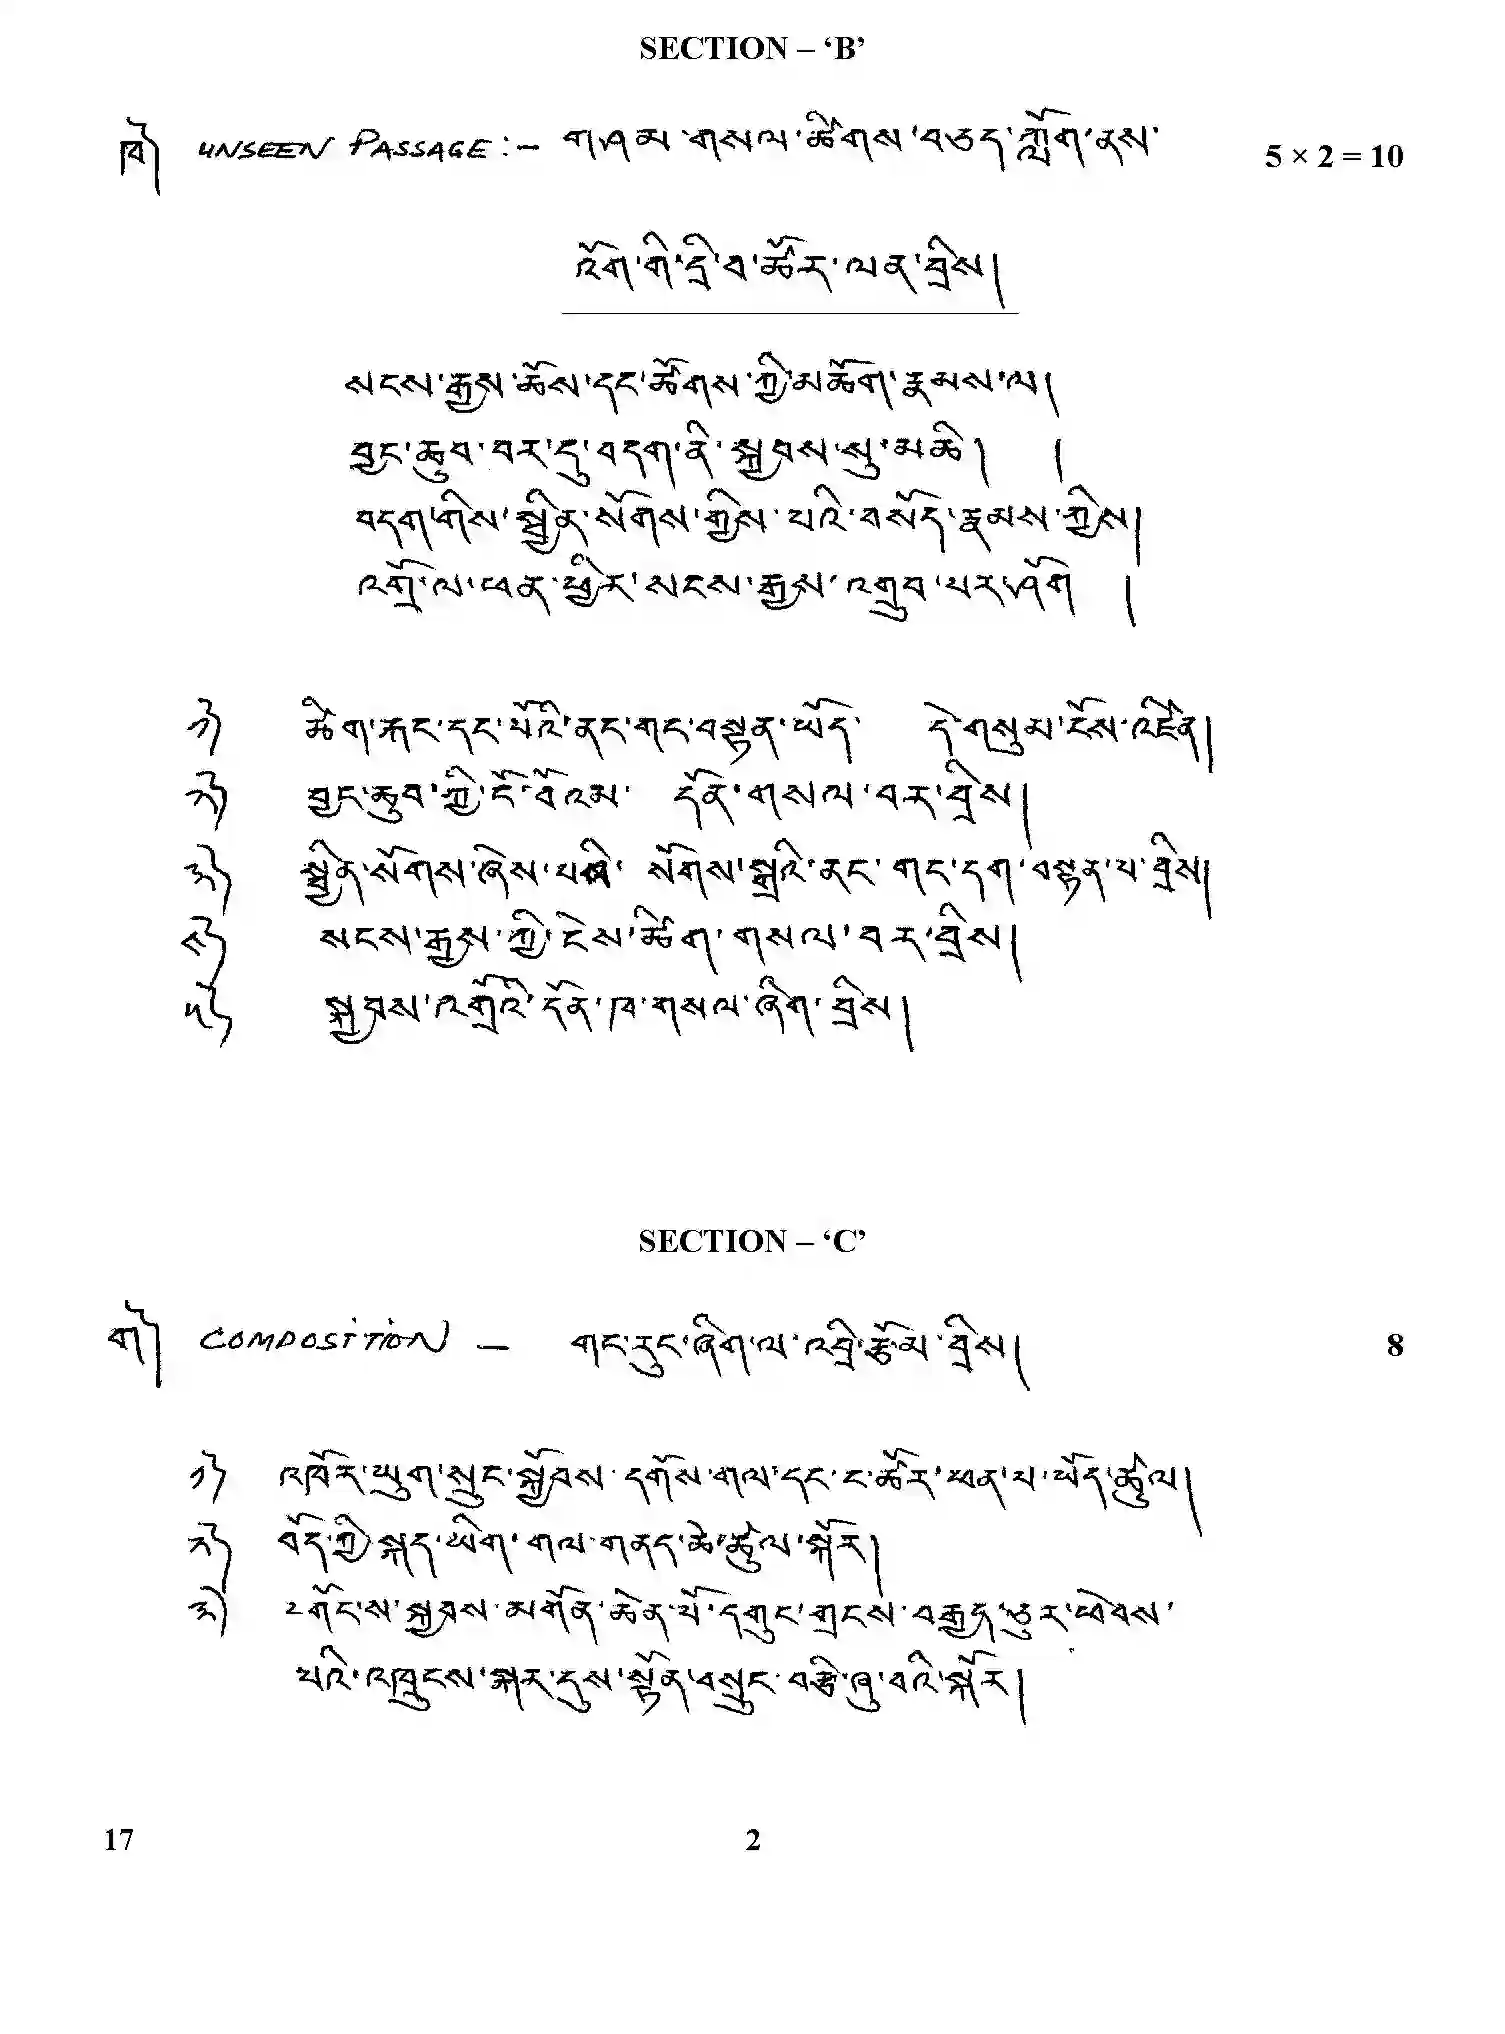 SECTION – ‘B’
ཁ༽ UNSEEN PASSAGE :- གཤམ་གསལ་ཚིགས་བཅད་ཀློག་ནས་ 5 × 2 = 10
འོག་གི་དྲི་བ་ཚོར་ལན་བྲིས།
སངས་རྒྱས་ཆོས་དང་ཚོགས་ཀྱི་མཆོག་རྣམས་ལ།
བྱང་ཆུབ་བར་དུ་བདག་ནི་སྐྱབས་སུ་མཆི། །
བདག་གིས་སྦྱིན་སོགས་གྱིས་པའི་བསོད་རྣམས་ཀྱིས།
འགྲོ་ལ་ཕན་ཕྱིར་སངས་རྒྱས་འགྲུབ་པར་ཤོག །
༡༽ ཚིག་རྐང་དང་པོའི་ནང་གང་བསྟན་ཡོད་ དེ་གསུམ་ངོས་འཛིན།
༢༽ བྱང་ཆུབ་ཀྱི་ངོ་བོའམ་ དོན་གསལ་བར་བྲིས།
༣༽ སྦྱིན་སོགས་ཞེས་པའི་ སོགས་སྒྲའི་ནང་གང་དག་བསྟན་པ་བྲིས།
༤༽ སངས་རྒྱས་ཀྱི་ངེས་ཚིག་གསལ་བར་བྲིས།
༥༽ སྐྱབས་འགྲོའི་དོན་ཁ་གསལ་ཞིག་བྲིས།
SECTION – ‘C’
ག༽ COMPOSITION – གང་རུང་ཞིག་ལ་འབྲི་རྩོམ་བྲིས། 8
༡༽ འཁོར་ཡུག་སྲུང་སྐྱོབས་དགོས་གལ་དང་ང་ཚོར་ཕན་པ་ཡོད་ཚུལ།
༢༽ བོད་ཀྱི་སྐད་ཡིག་གལ་གནད་ཆེ་ཚུལ་སྐོར།
༣༽ ༸གོང་ས་སྐྱབས་མགོན་ཆེན་པོ་དགུང་གྲངས་བརྒྱད་ཅུར་ཕེབས་
པའི་འཁྲུངས་སྐར་དུས་སྟོན་བསྲུང་བརྩི་ཞུ་བའི་སྐོར།
17 2